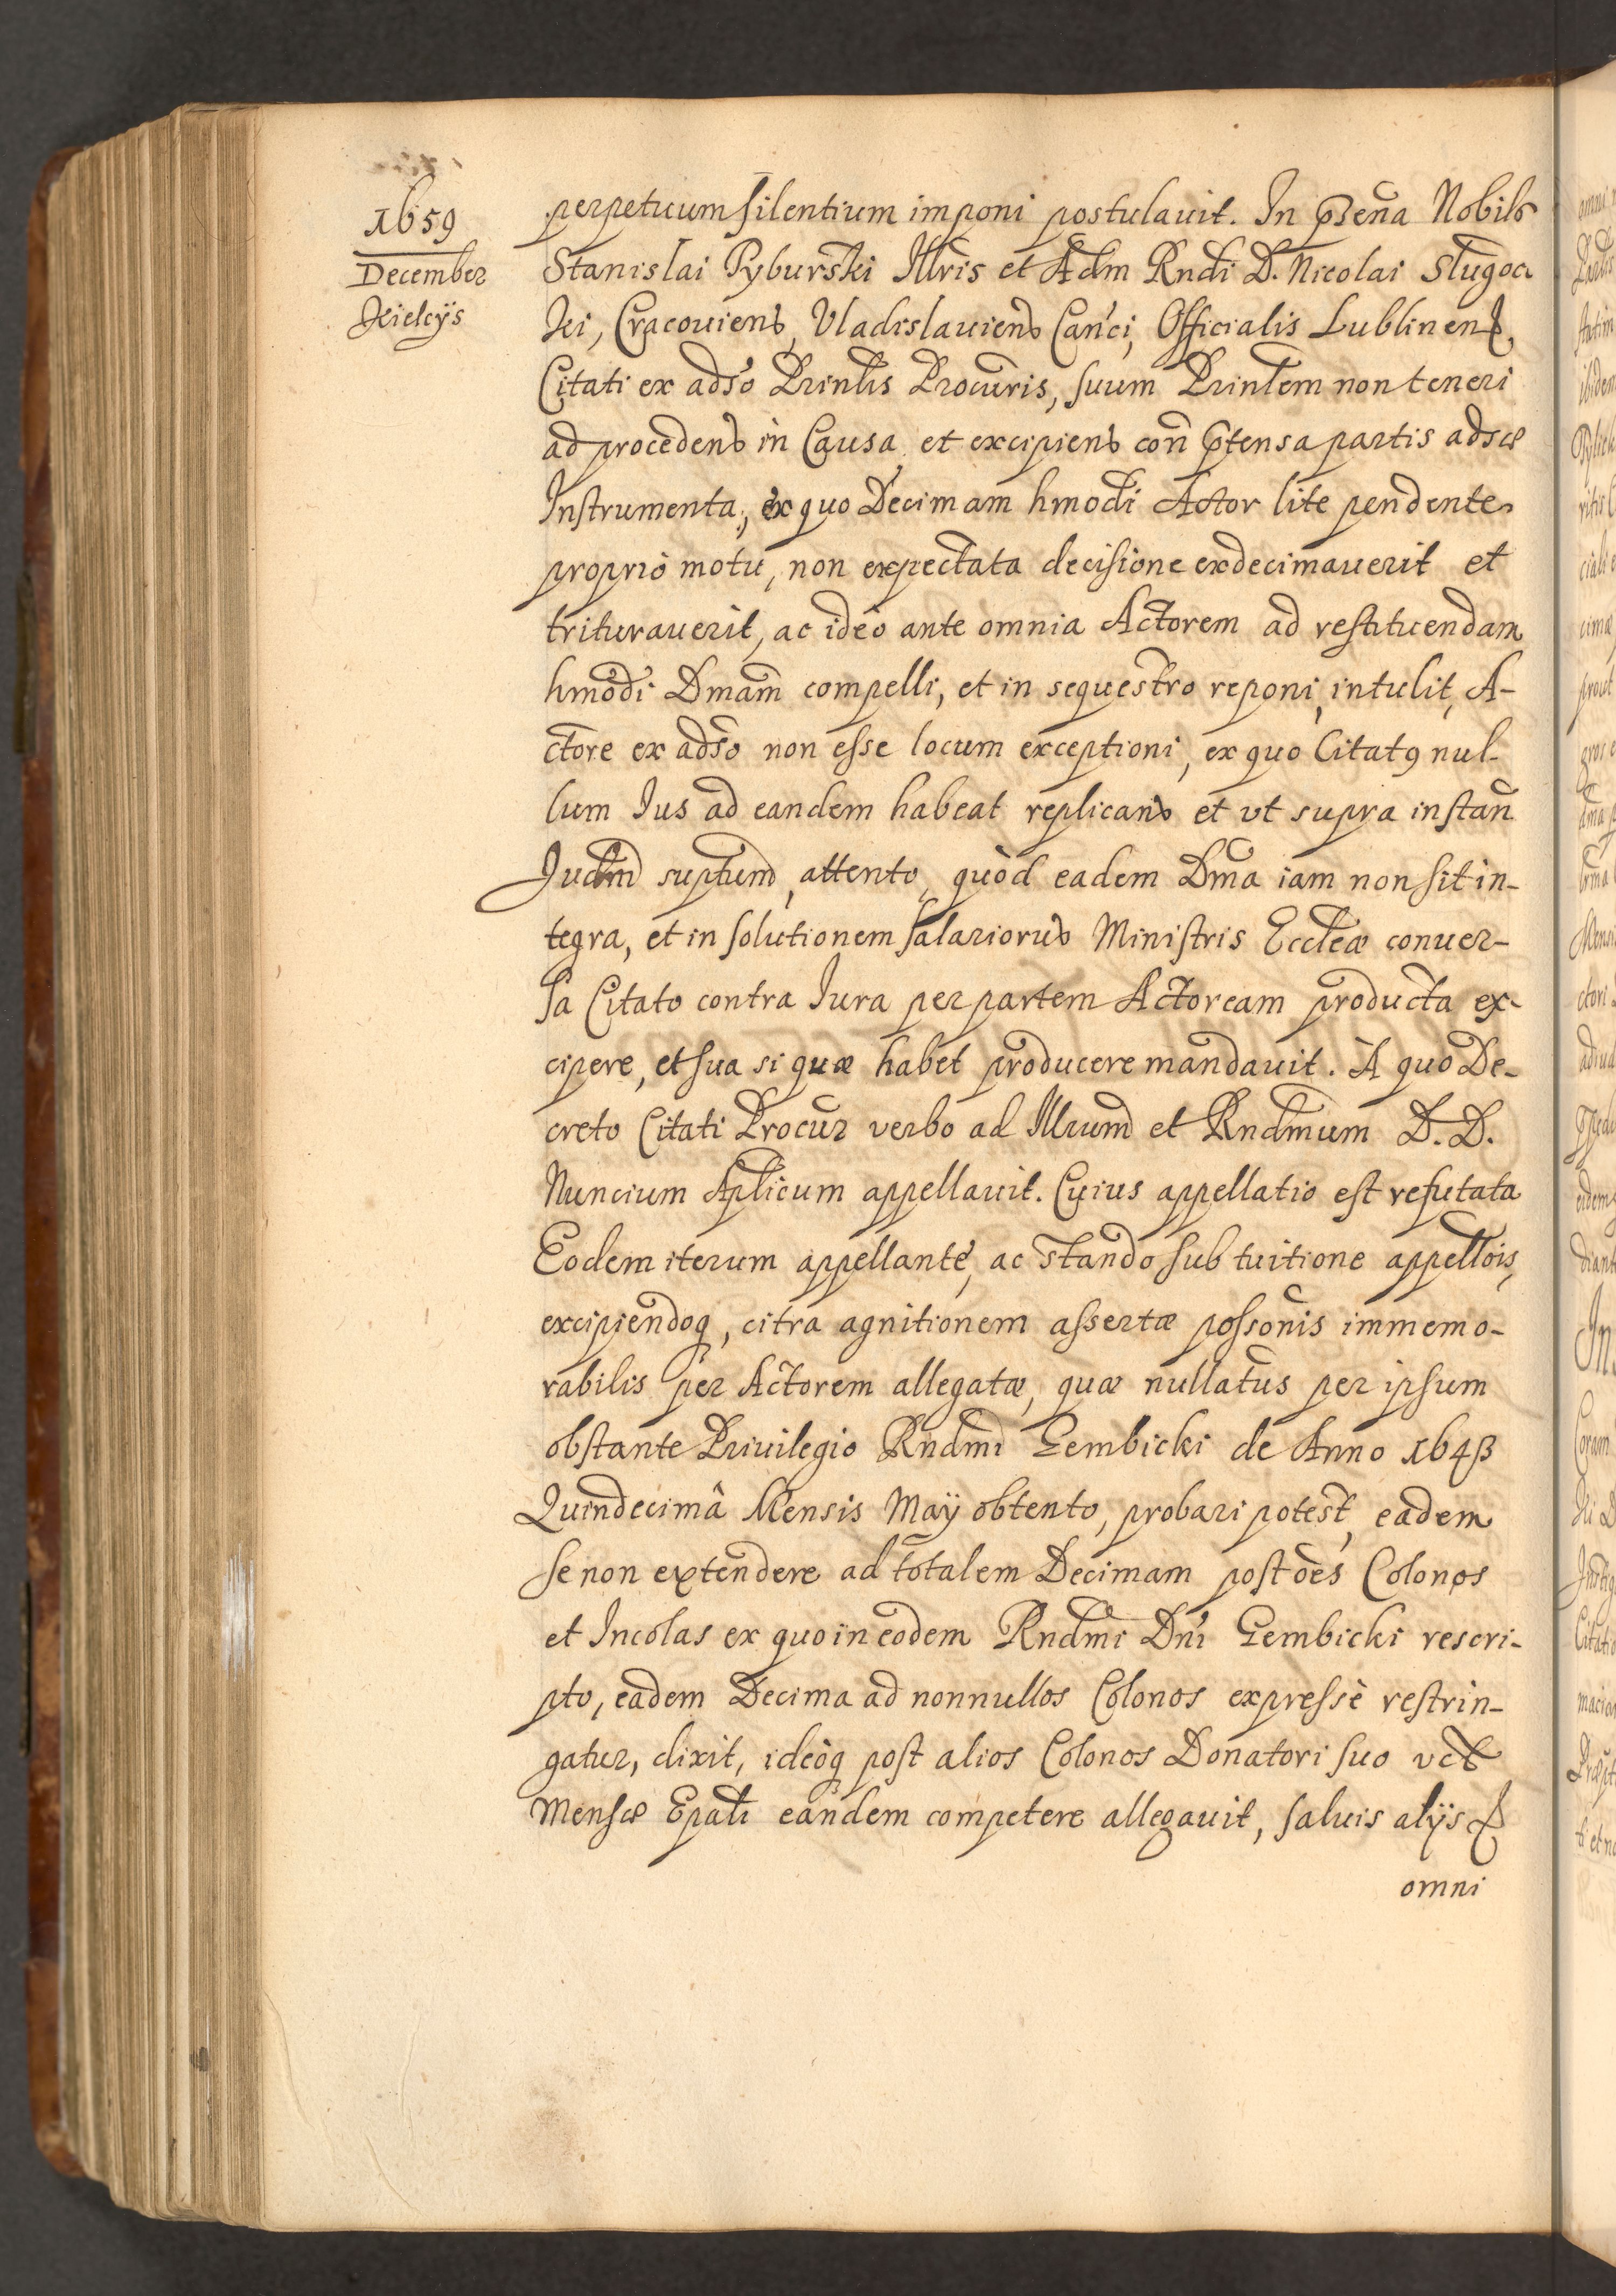 1659
December
Kielcÿs
perpetuum silentium imponi postulauit. In p̃sen̄a Nobilis
Stanislai Pyburski Illris et Adm Rndi D. Nicolai Slugoc
ki, Cracouiens, Vladislauiens Can̄ci, Officialis Lublinens,
Citati ex adso Prinlis Procuris, suum Prinlem non teneri
ad procedens in Causa et excipiens con̄ p̃tensa partis adsæ
Instrumenta, ex quo Decimam hmodi Actor lite pendente
proprio motu, non expectata decisione exdecimauerit et
triturauerit, ac ideò ante omnia Actorem ad restituendam
hmodi Dmam compelli, et in sequestro reponi, intulit, A-
ctore ex adso non esse locum exceptioni, ex quo Citatꝯ nul-
lum Ius ad eandem habeat replicans et vt supra instan̄
attento, quòd eadem Dma iam non sit in-
tegra, et in solutionem salariorus Ministris Eccleæ conuer-
sa Citato contra Iura per partem Actoream producta ex-
cipere, et sua si quæ habet producere mandauit. A quo De-
creto Citati Procur verbo ad Illrum et Rndmum D. D.
Nuncium Aplicum appellauit. Cuius appellatio est refutata
Eodem iterum appellante, ac stando sub tuitione appellois,
excipiendoq, citra agnitionem assertæ possonis immemo-
rabilis per Actorem allegatæ, quæ nullatus per ipsum
obstante Priuilegio Rndmi Gembicki de Anno 1648
Quindecimâ Mensis Maÿ obtento, probari potest, eadem
se non extendere ad totalem Decimam post oe͂s Colonos
et Incolas ex quo in eodem Rndmi Dn̄i Gembicki rescri-
pto, eadem Decima ad nonnullos Colonos expressè restrin-
gatur, dixit, ideòq post alios Colonos Donatori suo vel
Mensæ Epali eandem competere allegauit, saluis alÿs
omni